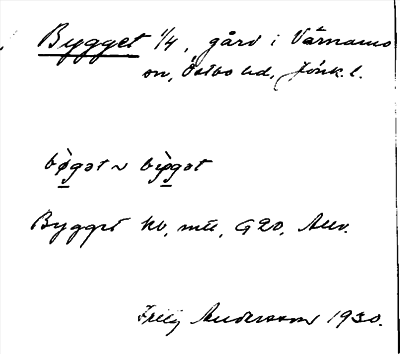 Bygget 1/4, gård i Värnamo
sn, Östbo hd, Jönk. l.
bø̀gət ~ bỳgət
Bygget kb, mtl, G20, Anv.
Andersson 1930.